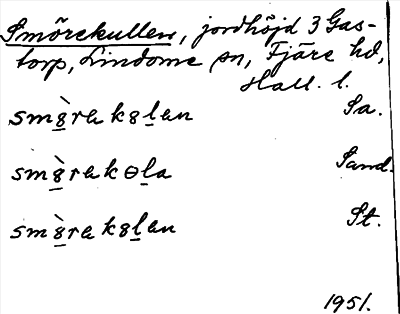 Smörekullen, jordhöjd 3 Gas-
torp, Lindome sn, Fjäre hd,
Hall. l.
sm8̲̀rek8l̲en Sa.
sm8̲̀rekɵl̲a Sand.
sm8̲̀rek8l̲en St.
1951.